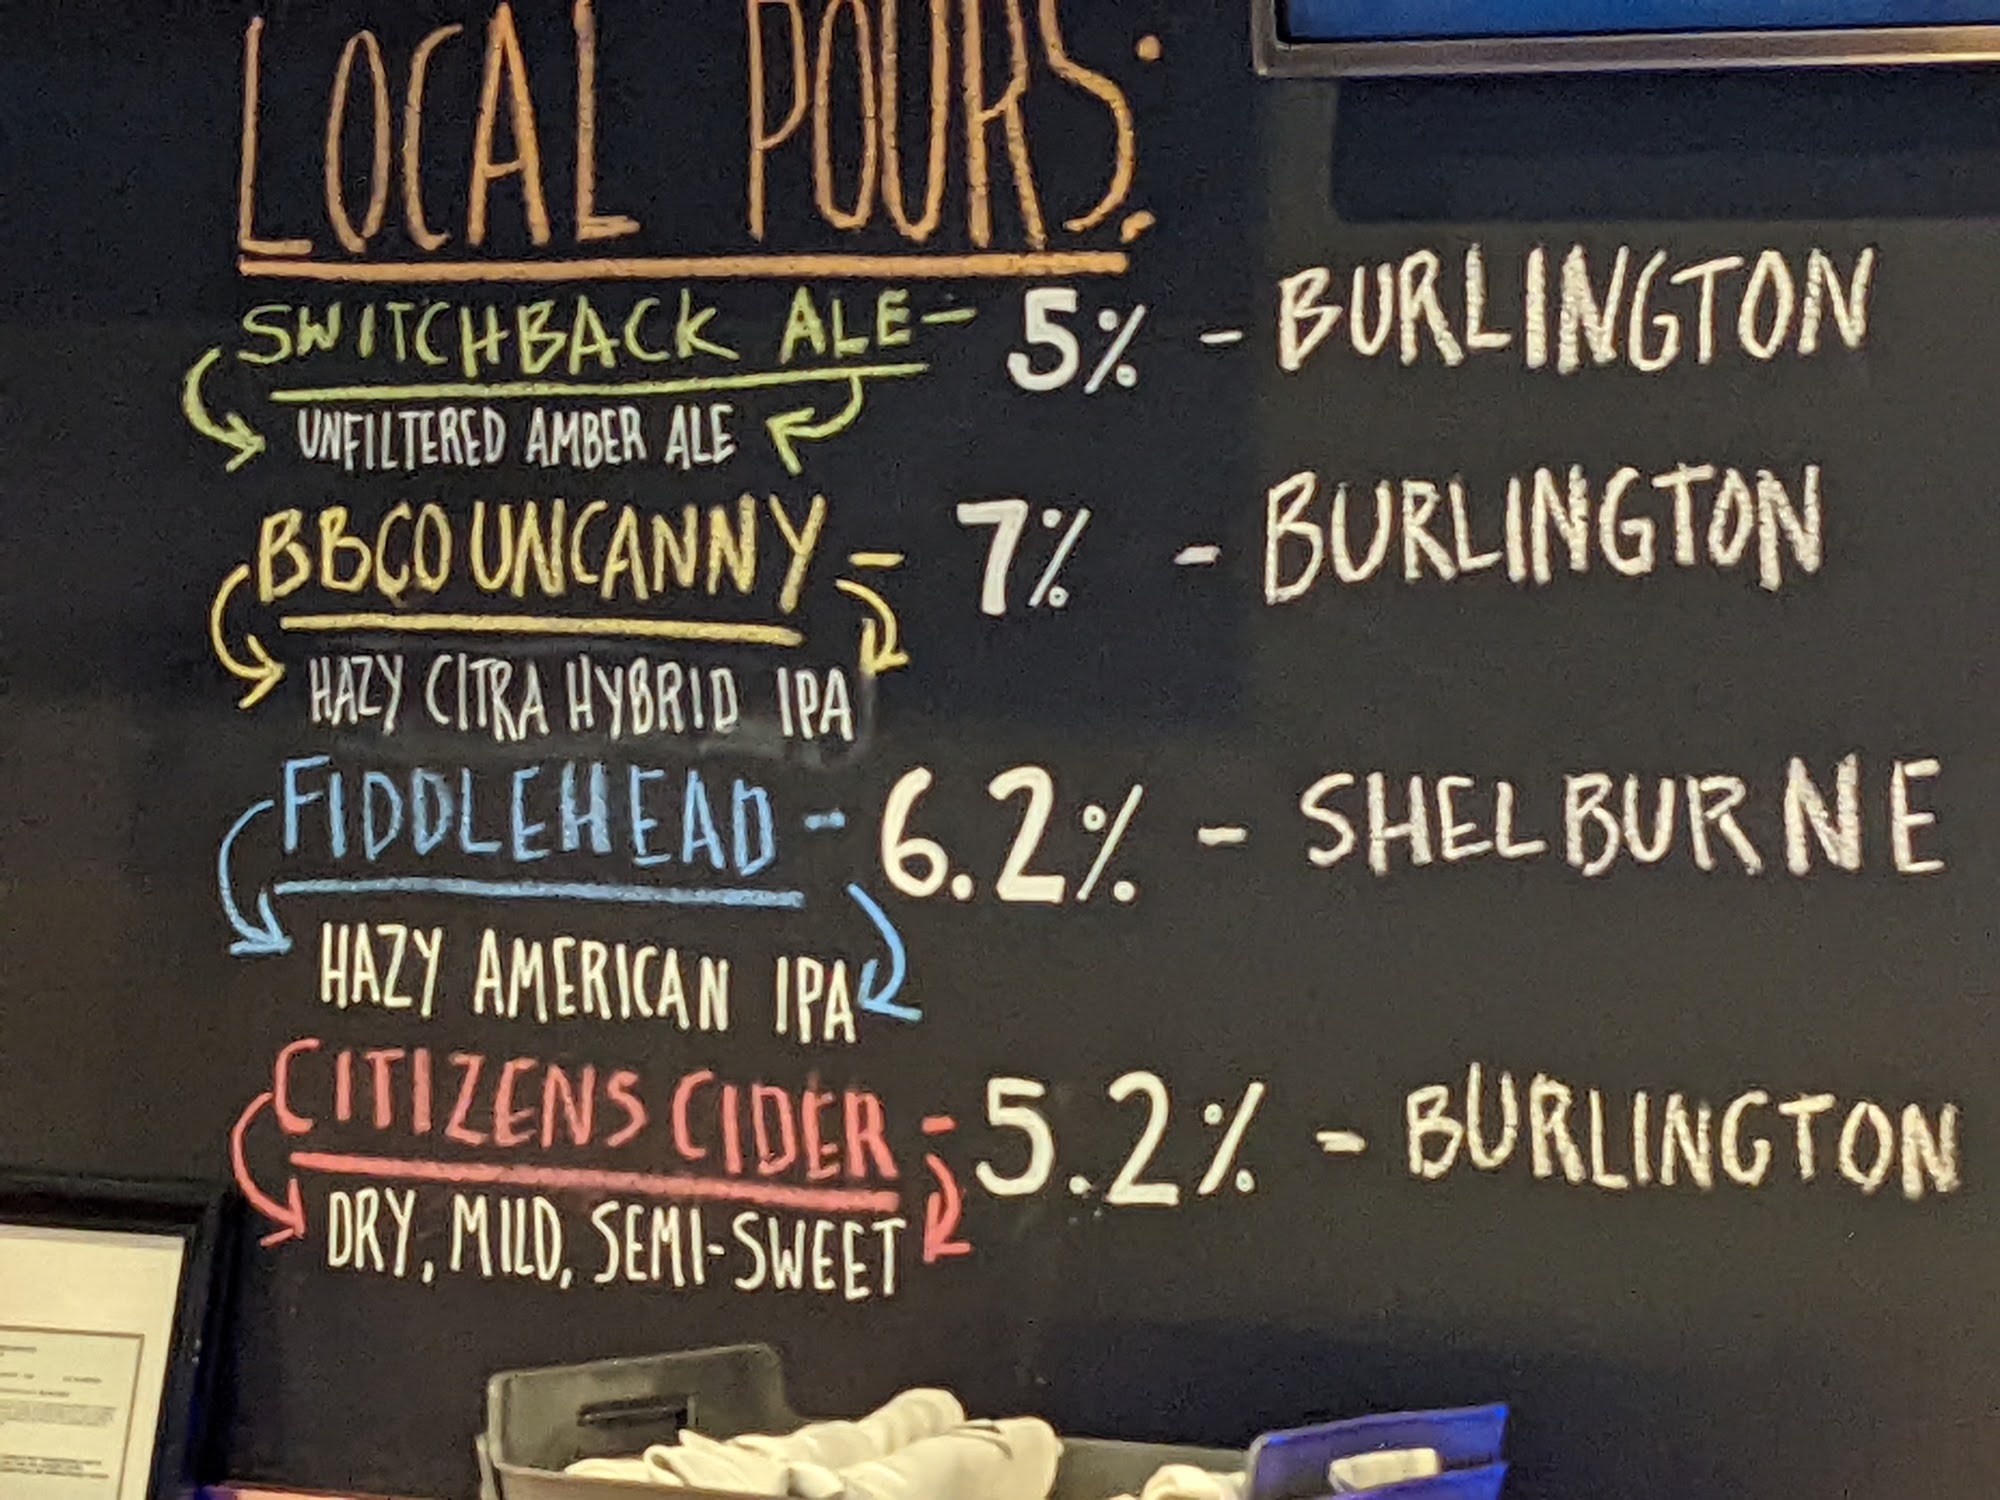 LOCAL POURS:
SWITCHBACK ALE - 5% - BURLINGTON
UNFILTERED AMBER ALE
BBCO UNCANNY - 7% - BURLINGTON
HAZY CITRA HYBRID IPA
FIDDLEHEAD - 6.2% - SHELBURNE
HAZY AMERICAN IPA
CITIZENS CIDER - 5.2% - BURLINGTON
DRY, MILD, SEMI-SWEET